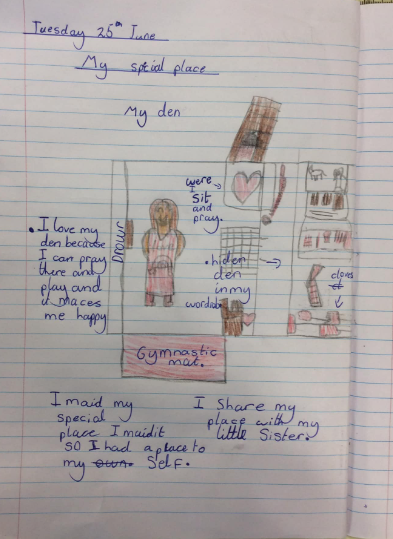 Tuesday 25th June
My special place
My den
were
I
sit
and
pray.
• I love my
den because
I can pray
there and
play and
it maces
me happy
Drowr
• hiden
den
in my
wordrobe
cloves
Gymnastic
mat.
I maid my
special
place I maidit
so I had a place to
my own. Self.
I Share my
place with my
little Sister.